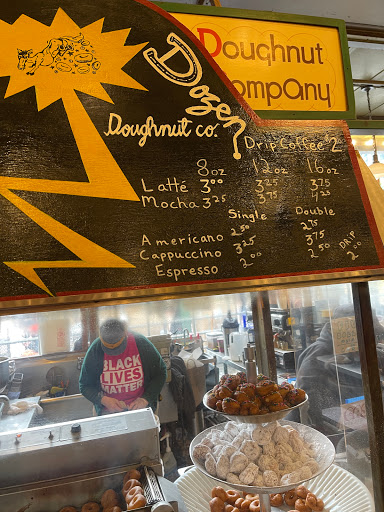 Doughnut
Company
Dozen
Doughnut co.
Drip Coffee 2
8oz 12oz 16oz
Latté 3.00 3.25 3.75
Mocha 3.25 3.75 4.25
Single Double
Americano 2.50 2.75
Cappuccino 3.25 3.75
Espresso 2.00 2.50
DRIP
2.00
BLACK
LIVES
MATTER